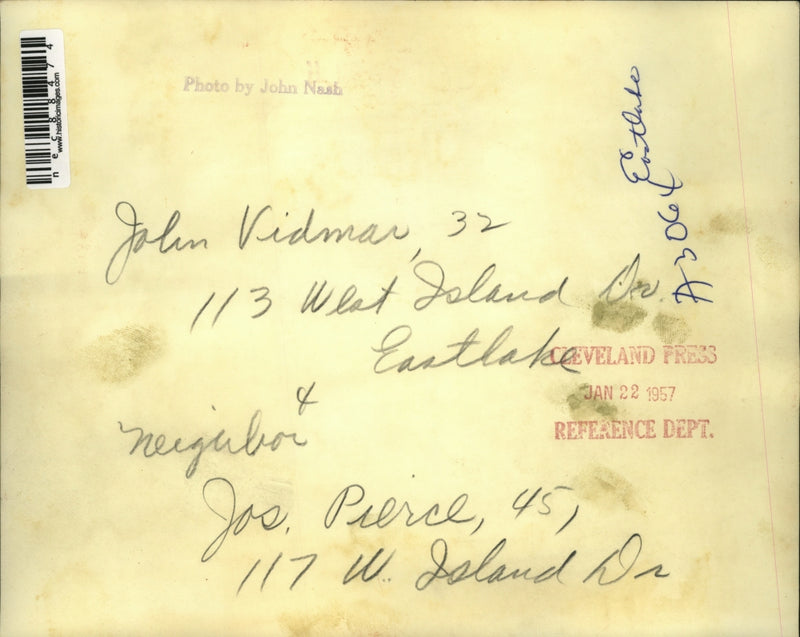 nec88474
www.historicimages.com
Photo by John Nash
A3064 Eastlake
John Vidmar, 32
113 West Island Dr.
Eastlake
CLEVELAND PRESS
JAN 22 1957
REFERENCE DEPT.
&
neighbor
Jos. Pierce, 45,
117 W. Island Dr